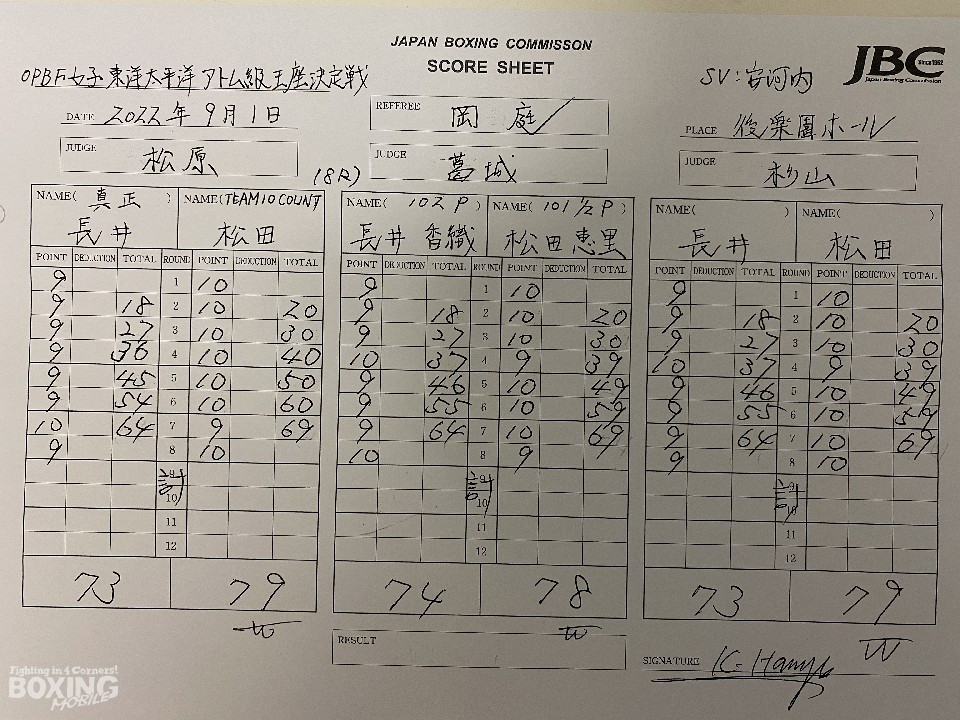 JAPAN BOXING COMMISSON
SCORE SHEET
JBC Since 1952
Japan Boxing Commission
OPBF女子東洋太平洋アトム級王座決定戦
SV:安河内
DATE 2022年9月1日
REFEREE 岡庭
PLACE 後楽園ホール
JUDGE 松原
(8R)
JUDGE 葛城
JUDGE 杉山
NAME(真正) NAME(TEAM10COUNT) NAME(102 P) NAME(101 1/2 P) NAME( ) NAME( )
長井 松田 長井 香織 松田 恵里 長井 松田
POINT DEDUCTION TOTAL ROUND POINT DEDUCTION TOTAL POINT DEDUCTION TOTAL ROUND POINT DEDUCTION TOTAL POINT DEDUCTION TOTAL ROUND POINT DEDUCTION TOTAL
9 1 10 9 1 10 9 1 10
9 18 2 10 20 9 18 2 10 20 9 18 2 10 20
9 27 3 10 30 9 27 3 10 30 9 27 3 10 30
9 36 4 10 40 10 37 4 9 39 10 37 4 9 39
9 45 5 10 50 9 46 5 10 49 9 46 5 10 49
9 54 6 10 60 9 55 6 10 59 9 55 6 10 59
10 64 7 9 69 9 64 7 10 69 9 64 7 10 69
9 8 10 10 8 9 9 8 10
9 9 9
計 計 計
10 10 10
11 11 11
12 12 12
73 79 74 78 73 79
W W W
RESULT
SIGNATURE
Fighting in 4 Corners!
BOXING
MOBILE